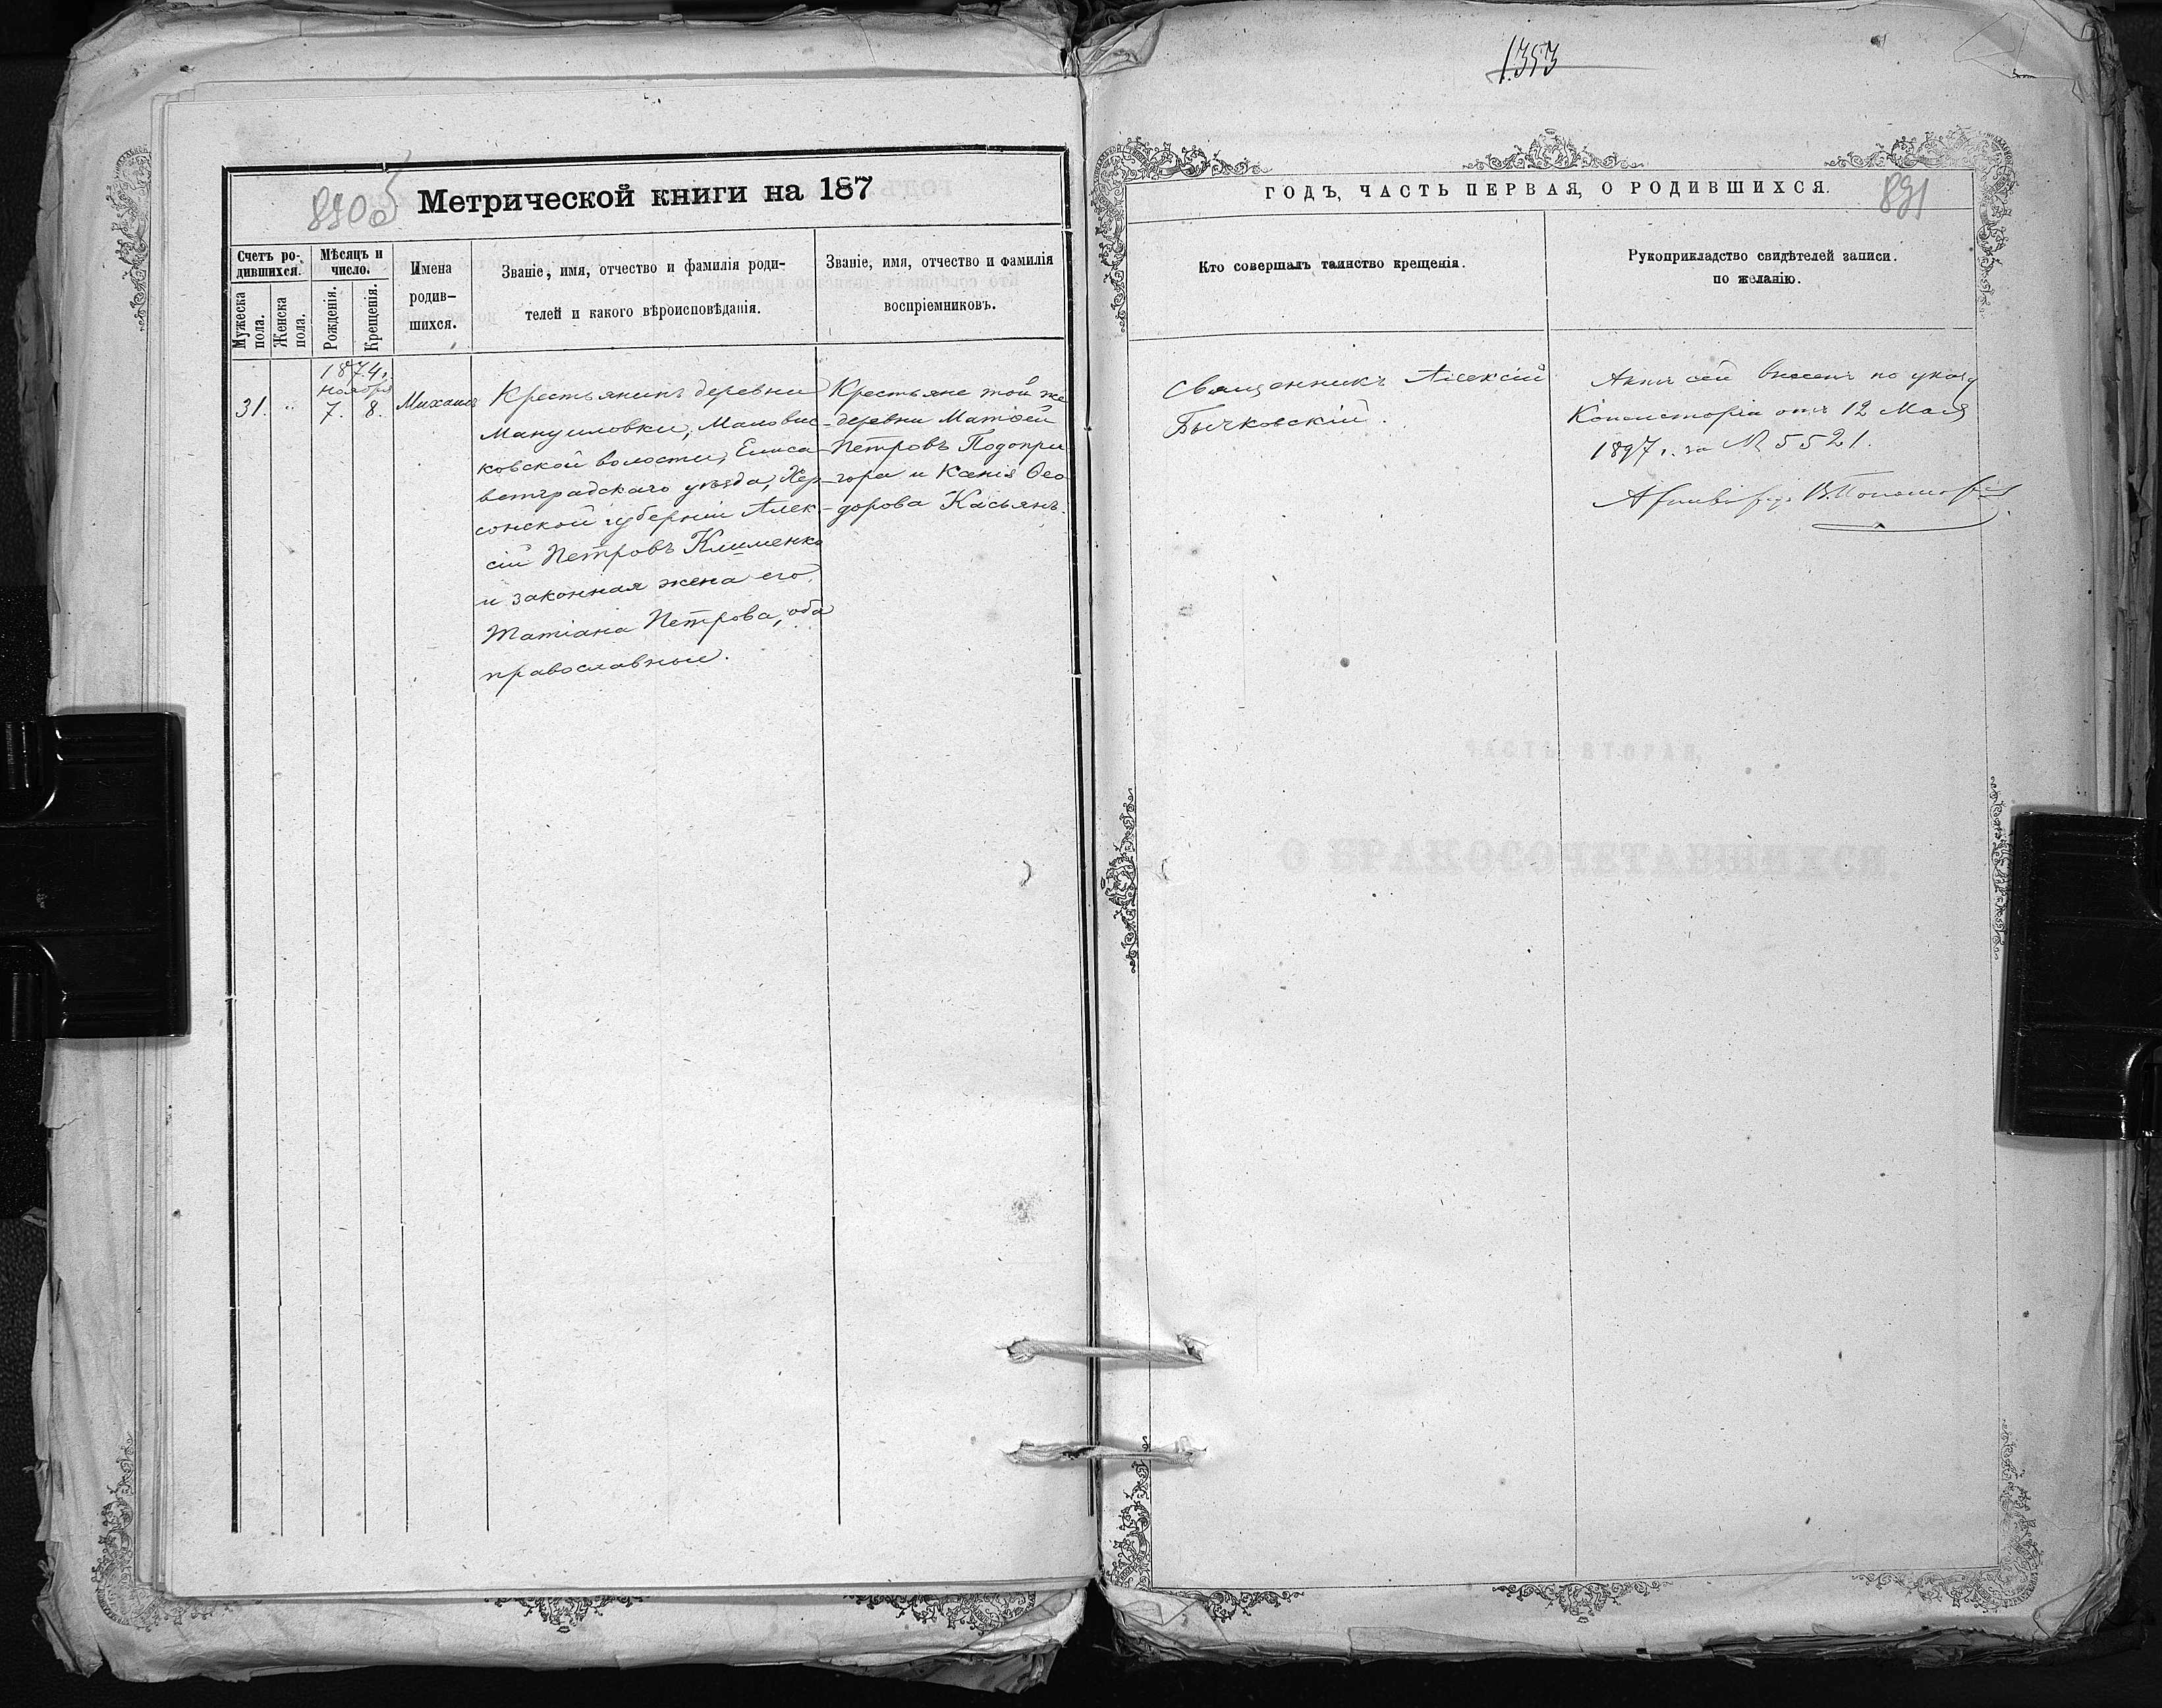 1353
890об
Метрической книги на 187
Счетъ ро-
дившихся.
Мужеска
пола.
Женска
пола.
Мѣсяцъ и
число.
Рожденія.
Крещенія.
Имена
родив-
шихся.
Званіе, имя, отчество и фамилія роди-
телей и какого вѣроисповѣданія.
Званіе, имя, отчество и фамилія
воспріемниковъ.
1874 г.
Ноября
31. " 7. 8. Михаилъ
Крестьянинъ деревни
Мануиловки,
ковской волости, Елиса-
ветградскаго уѣзда, Хер-
сонской губерніи Алек-
сій Петровъ Клименко
и законная жена его
Татіана Петрова, оба
православные.
Крестьяне той же
деревни Матѳей
Петровъ Подопри
гора и Ксенія Ѳео
дорова Касьянъ.
ГОДЪ, ЧАСТЬ ПЕРВАЯ, О РОДИВШИХСЯ.
891
Кто совершалъ таинство крещенія.
Рукоприкладство свидѣтелей записи.
по желанію.
Священникъ Алексій
Бычковскій.
Актъ сей внесенъ по указу
Консисторіи отъ 12 Мая
1897 г. за № 5521.